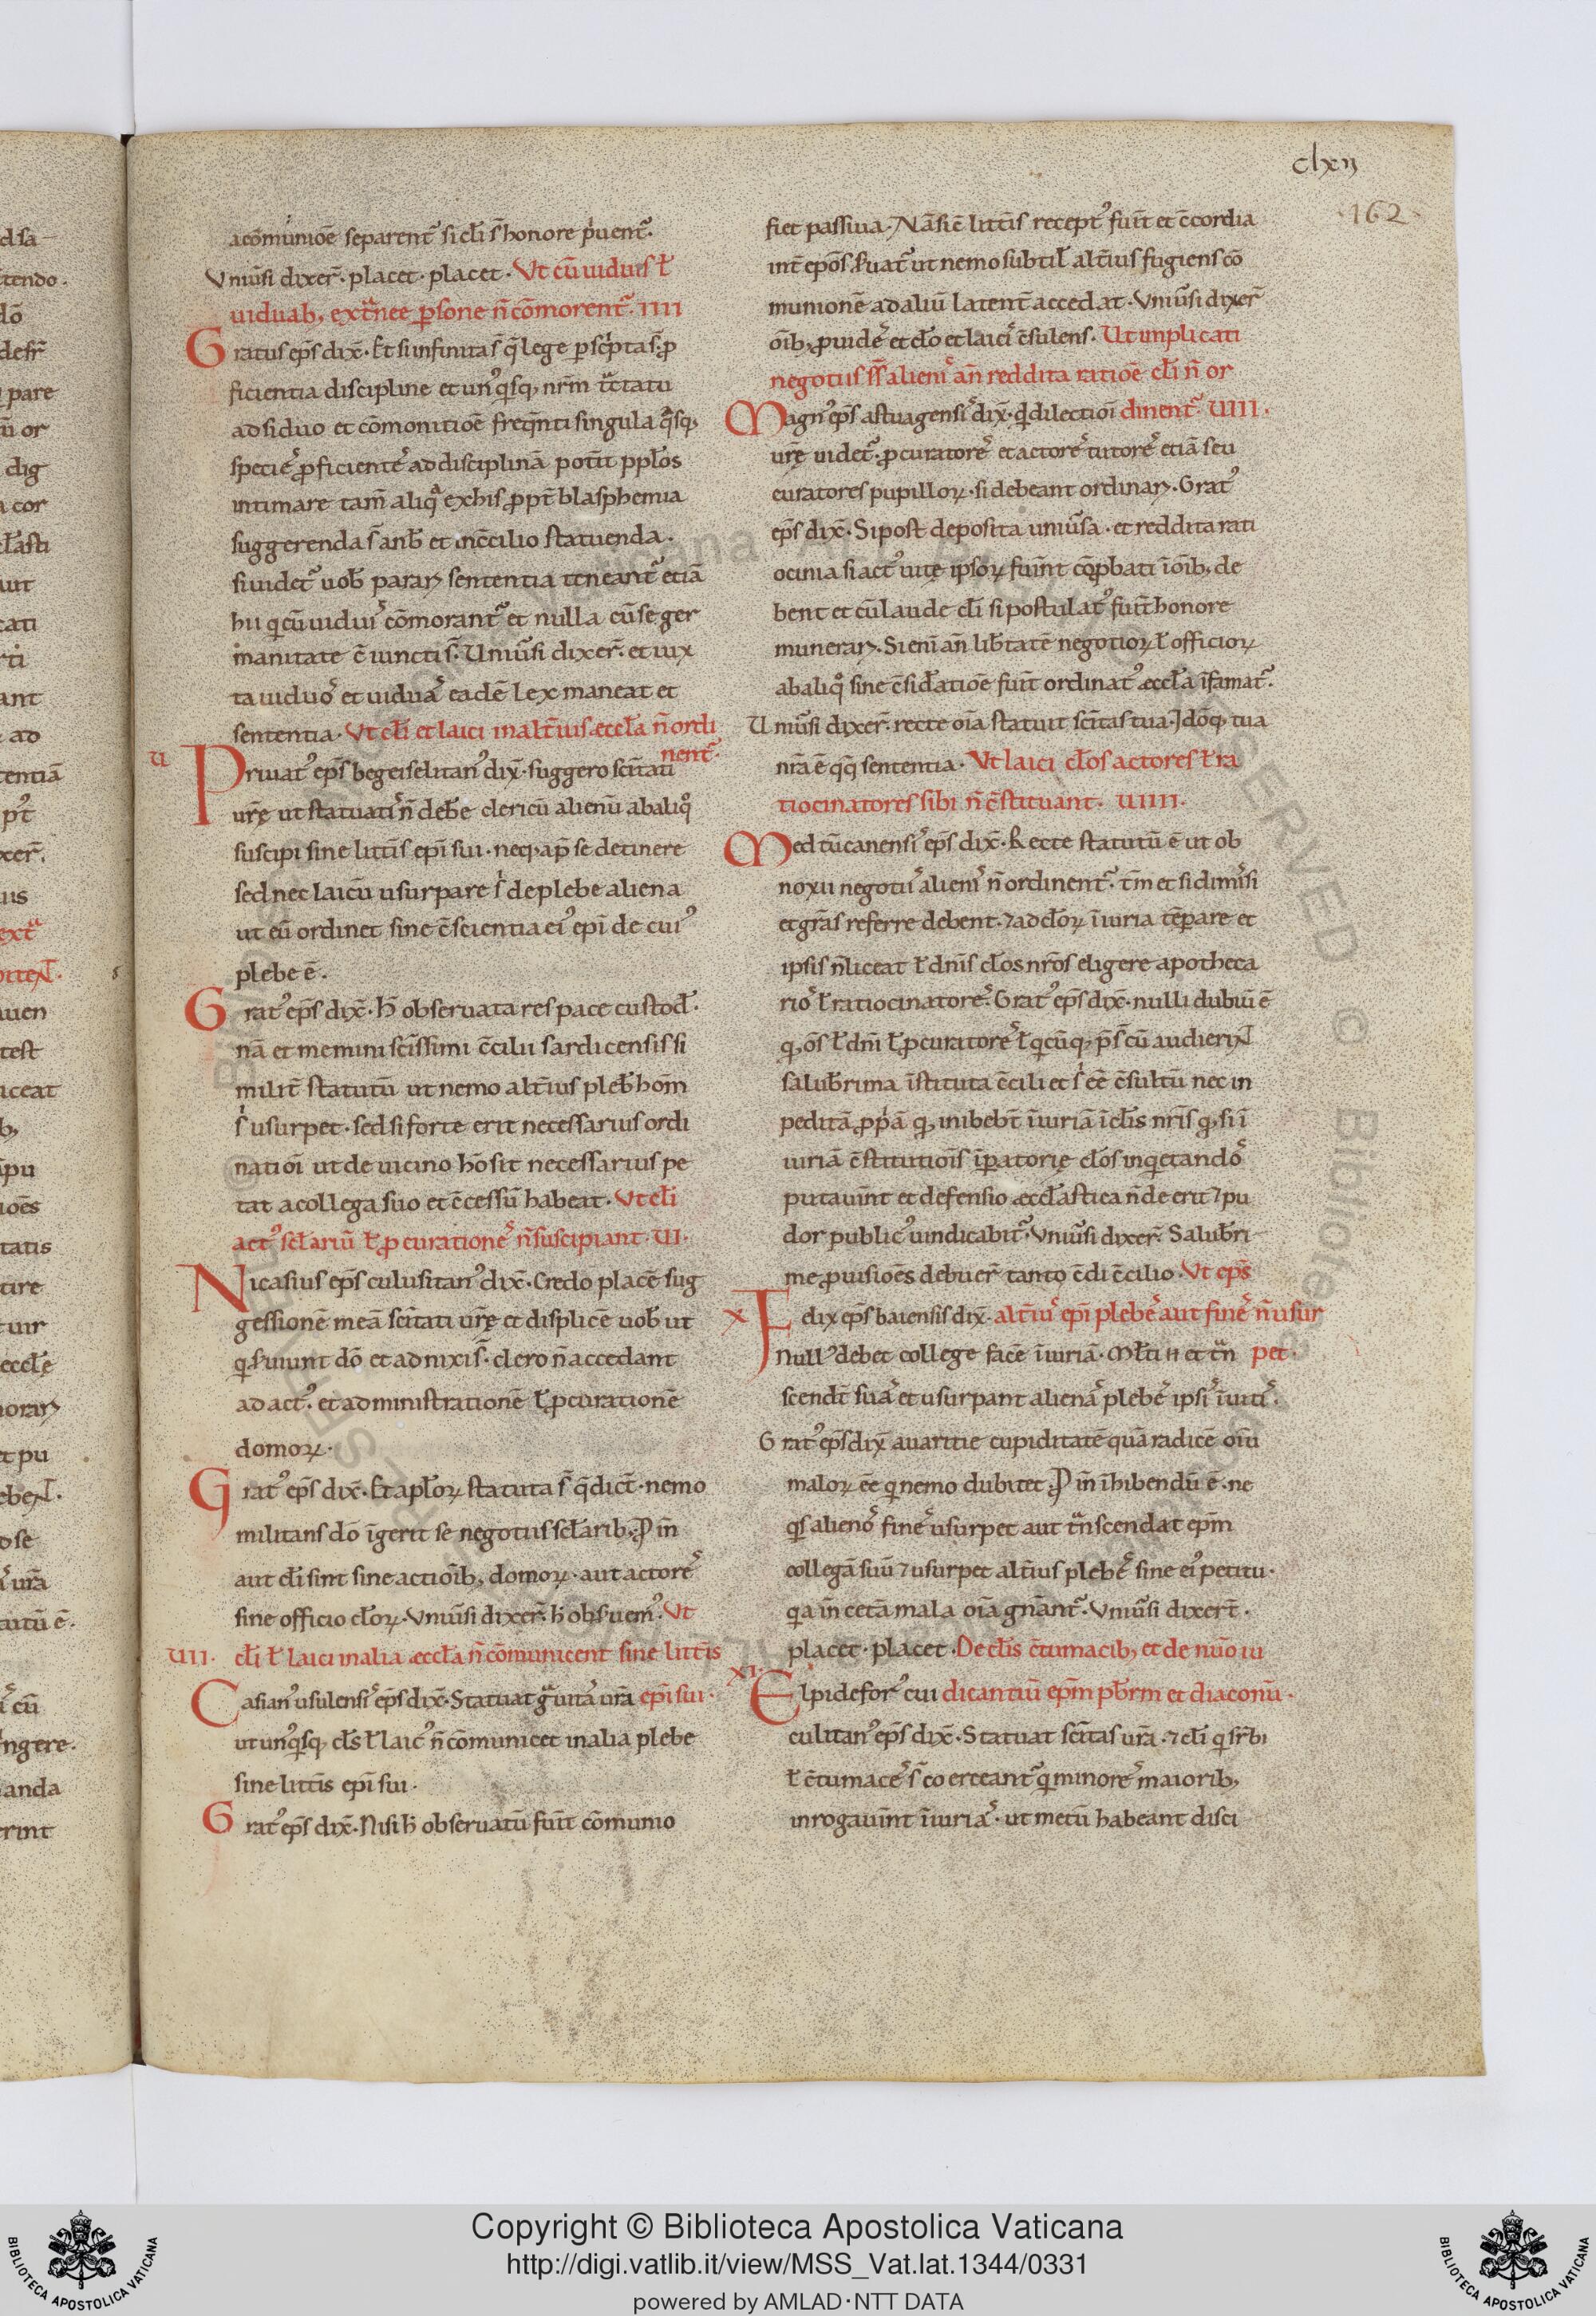 clxii
162
acōmuniōe separent᷑ si cłi s̄ honore p̍uent᷑.
Vniũsi dixer̄. placet. placet. Vt cū uiduis ł
uiduab; ext̾nee ꝑsone n̄ cōmorent᷑. IIII
Gratus ep̄s dix̄. Et si infinita s̄ q̄ lege ꝑsc̍pta s̄. ꝓ
ficientia discipline et unꝰ q̍sq; nr̄m t̾ctatu
adsiduo et cōmonitiōe freq̄nti singula q̾sq;
specieˢ ꝓficienteˢ ad disciplinā potūt pplos
intimare tam̄ aliq̾ ex his ꝓpt̄ blasphemia
suggerenda s̄ anƀ et in c̄cilio statuenda.
si uidet᷑ uob̄ parar̄ sententia teneant᷑ etiā
hii q̍ cū uiduiˢ cōmorant᷑ et nulla cū se ger
manitate c̄iuncti s̄. Uniũsi dixer̄. et iux
ta uiduoˢ et uiduaˢ eadē lex maneat et
sententia. Vt cłi et laici in alt̄ius eccła n̄ ordi
nent᷑
U
Priuatꝰ ep̄s begeiselitanꝰ dix̄. suggero sc̄itati
ur̄ę ut statuatiˢ n̄ debe clericū alienū ab aliqͦ
suscipi sine litt̄is ep̄i sui. neq; ap̄ se detinere
sed nec laicū usurpare s̍ de plebe aliena
ut eū ordinet sine c̄scientia eiꝰ ep̄i de cuiꝰ
plebe ē.
Gratꝰ ep̄s dix̄. h̄ obseruata res pace custod̄.
nā et memini sc̄issimi c̄cilii sardicensis si
milit̄ statutū ut nemo alt̄ius pleb̄ hom̄
s̍ usurpet. sed si forte erit necessarius ordi
natioi ut de uicino ho̅ sit necessarius pe
tat a collega suo et c̄cessū habeat. Vt cłi
actꝰ scłariū ł ꝓcurationeˢ n̄ suscipiant. VI.
Nicasius ep̄s culusitanꝰ dix̄. Credo placē sug
gessionē meā sc̄itati ur̄ę et displicē uob̄ ut
q̍ s̄uiunt dō et adnixi s̄. clero n̄ accedant
ad actꝰ. et administrationē ł ꝓcurationē
domoꝝ.
Gratꝰ ep̄s dix̄. Et apłoꝝ statuta s̄ q̄ dic̄t. nemo
militans dō īgerit se negotiis scłarib; P̍ in̄
aut cłi sint sine actioīb; domoꝝ. aut actoreˢ
sine officio cłoꝝ. Vniũsi dixer̄. h̄ obs̄uemꝰ. Vt
VII. cłi ł laici in alia eccła n̄ cōmunicent sine litt̄is
Casianꝰ usulensiˢ ep̄s dix̄. Statuat g̾uitaˢ ur̄a ep̄i sui.
ut unꝰq̍sq; cłs ł laicꝰ n̄ cōmunicet in alia plebe
sine litt̄is ep̄i sui.
Gratꝰ ep̄s dix̄. Nisi h̄ obseruatū fuīt cōmunio
fiet passiua. Nā si c̄ litt̄is receptꝰ fuīt et c̄cordia
int̄ ep̄os s̄uat᷑ ut nemo subtił alt̄ius fugiens cō
munionē ad aliū latent̄ accedat. Vniũsi dixer̄
oīb; ꝓuideˢ et cło et laiciˢ c̄sulens. Ut implicati
negotiis s̄s alieniˢ an̄ reddita ratiōe cłi n̄ or
Magnꝰ ep̄s astuagensiˢ dix̄. q̍d dilectioi dinent᷑. VIII.
ur̄ę uidet᷑. ꝓcuratoreˢ et actoreˢ tutoreˢ etiā seu
curatores pupilloꝝ. si debeant ordinar̄. Gratꝰ
ep̄s dix̄. Si post deposita uniũsa. et reddita rati
ocinia si actꝰ uitę ipsoꝝ fuīnt cōꝓbati ī oīb; de
bent et cū laude cłi si postulatꝰ fuīt honore
munerar̄. Si eni̅ an̄ lib̄tatē negotioꝝ ł officioꝝ
ab aliqͦ sine c̄sid̄atiōe fuīt ordinatꝰ æccła īfamat᷑.
Uniũsi dixer̄. recte oīa statuit sc̄itas tua. Idōq; tua
nr̄a ē q̄q; sententia. Vt laici cłos actores ł ra
tiocinatores sibi n̄ c̄stituant. VIIII.
Med tūcanensiˢ ep̄s dix̄. Recte statutū ē ut ob
noxii negotiˢ alieniˢ n̄ ordinent᷑. t̄m et si dimiˢsi
et gr̄as referre debent. ⁊ ad cłoꝝ īiuria tēꝑare et
ipsis n̄ liceat ł dn̄is cłos nr̄os eligere apotheca
rioˢ ł ratiocinatoreˢ. Gratꝰ ep̄s dix̄. nulli dubiū ē
q; ōs ł dn̄i ł ꝓcuratoreˢ ł q̍cūq; p̄s̄ cū audierint
salub̄rima īstituta c̄cili et s̍ ēē c̄sultū nec in
peditā ꝓp̍ā q; inibebt̄ īiuriā ī cłis nr̄is q; si ī
iuriā c̄stitutiōis īꝑatorię cłos inq̍etandoˢ
putauīnt et defensio æccłastica n̄ de erit ⁊ pu
dor publicꝰ uindicabit᷑. Vniũsi dixer̄. Salub̄ri
me ꝓuisiōes debuer̄ tanto c̄di c̄cilio. Vt ep̄s
X
Fędix ep̄s baiensis dix̄. alt̄iuˢ ep̄i plebeˢ aut fineˢ n̄ usur
Nullꝰ debet college facē īiuriā. Młti n̄ et t̾n pet.
scendt̄ suaˢ et usurpant alienaˢ plebeˢ ipsiˢ īuitiˢ.
Gratꝰ ep̄s dix̄ auaritie cupiditatē quā radicē oīu
maloꝝ ēē q̍ nemo dubitet P̍ in̄ īhibendū ē. ne
q̍s alienoˢ fineˢ usurpet aut t̾nscendat ep̄m
collegā suū ⁊ usurpet alt̄ius plebeˢ sine eiꝰ petitu.
q̍a in̄ cetā mala oīa gn̄ant᷑. Vniũsi dixert̄.
placet. placet. De cłis c̄tumacib; et de nūo iu
XI.
Elpideforꝰ cui dicantiū ep̄m pb̄rm et diaconū.
culitanꝰ ep̄s dix̄. Statuat sc̄itas ur̄a. ⁊ cłi q̍ sr̄bi
ł c̄tumaceˢ s̄ coerceant᷑ q̍ minoreˢ maiorib;
inrogauīnt īiuriaˢ. ut metū habeant disci
Copyright © Biblioteca Apostolica Vaticana
http://digi.vatlib.it/view/MSS_Vat.lat.1344/0331
powered by AMLAD·NTT DATA
BIBLIOTECA APOSTOLICA VATICANA
BIBLIOTECA APOSTOLICA VATICANA